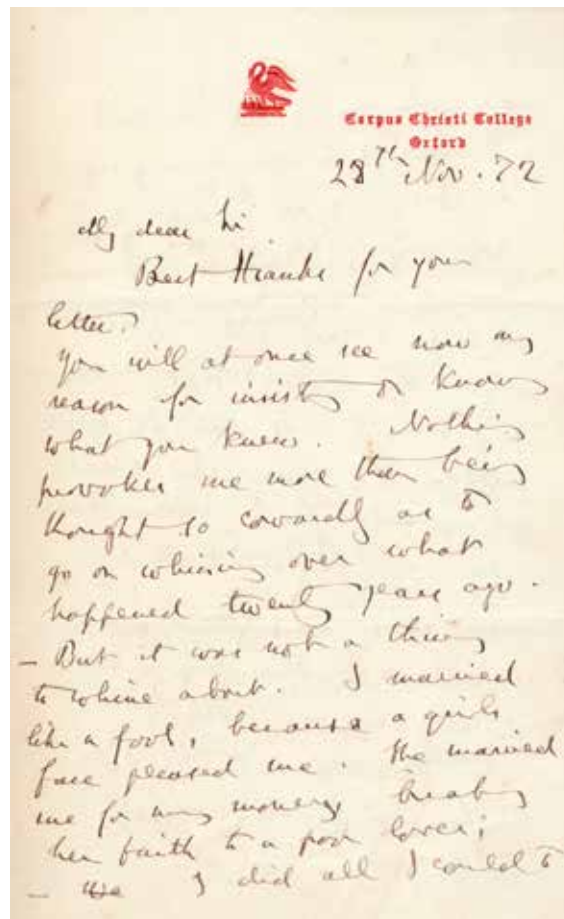 Corpus Christi College
Oxford
28th Nov. 72
My dear Sir
Best thanks for your
letter.
You will at once see now my
reason for insisting on knowing
what you knew. Nothing
provokes me more than being
thought so cowardly as to
go on whining over what
happened twenty years ago.
– But it was not a thing
to whine about. I married
like a fool, because a girls
face pleased me. She married
me for my money, breaking
her faith to a poor lover;
– I did all I could to